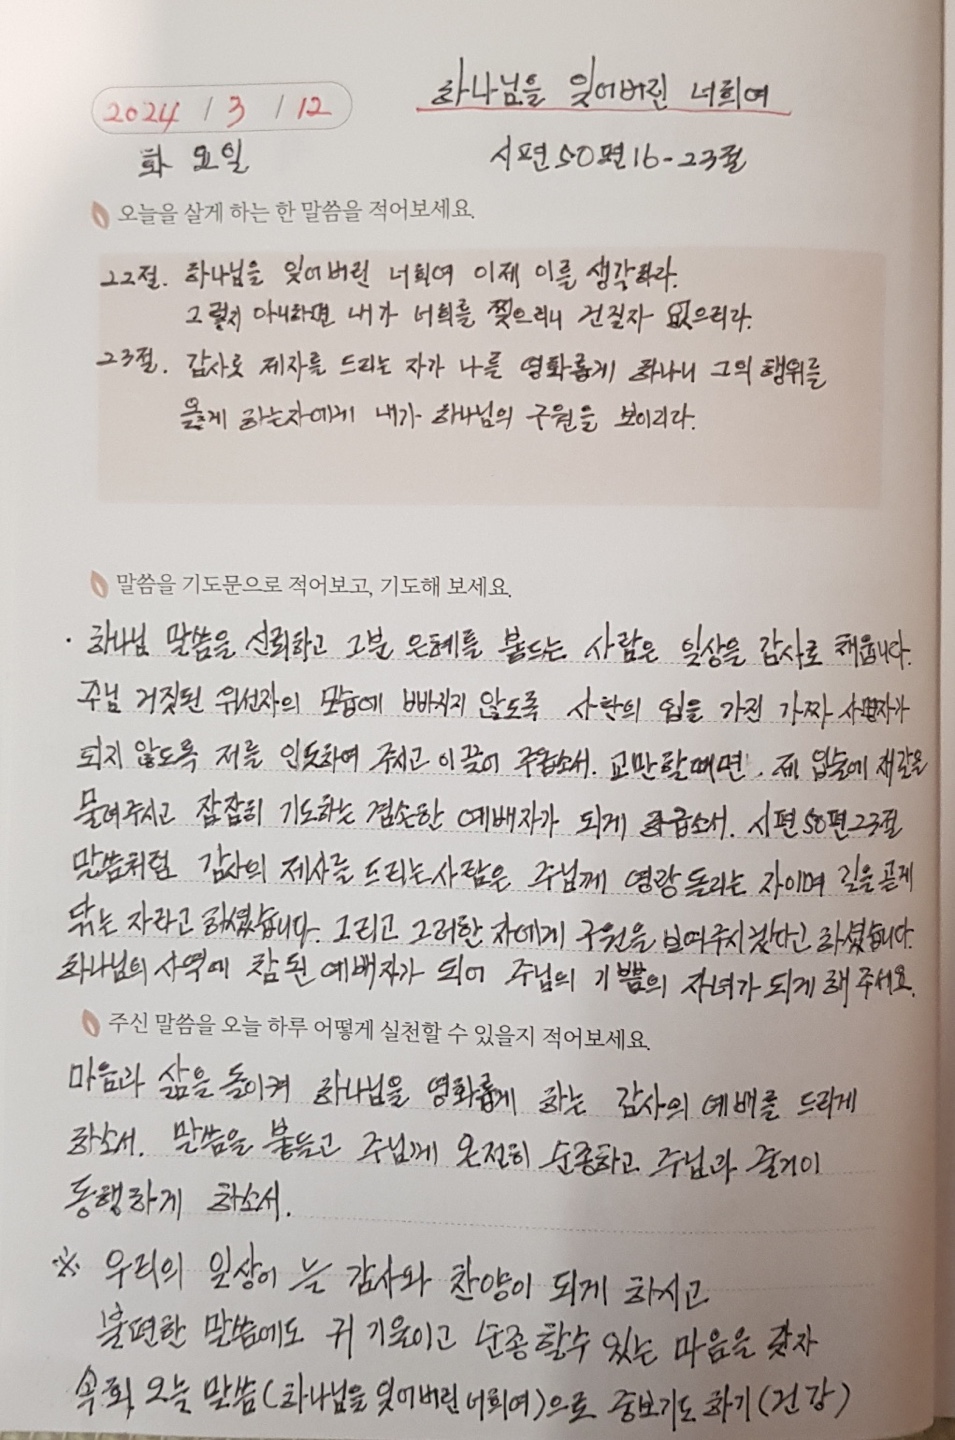 하나님을 잊어버린 너희여
2024 / 3 / 12
화 요일
시편 50편 16-23절
오늘을 살게 하는 한 말씀을 적어보세요.
22절. 하나님을 잊어버린 너희여 이제 이를 생각하라.
그렇지 아니하면 내가 너희를 찢으리니 건질자 없으리라.
23절. 감사로 제사를 드리는 자가 나를 영화롭게 하나니 그의 행위를
옳게 하는자에게 내가 하나님의 구원을 보이리라.
말씀을 기도문으로 적어보고, 기도해 보세요.
· 하나님 말씀을 신뢰하고 그분 은혜를 붙드는 사람은 일상을 감사로 채웁니다.
주님 거짓된 위선자의 모습에 빠지지 않도록 사탄의 입을 가진 가짜 사명자가
되지 않도록 저를 인도하여 주시고 이끌어 주옵소서. 교만할때면. 제 입술에 재갈을
물려주시고 잠잠히 기도하는 겸손한 예배자가 되게 하옵소서. 시편 50편 23절
말씀처럼 감사의 제사를 드리는 사람은 주님께 영광 돌리는 자이며 길을 곧게
닦는 자라고 하셨습니다. 그리고 그러한 자에게 구원을 보여주시겠다고 하셨습니다.
하나님의 사역에 참된 예배자가 되어 주님의 기쁨의 자녀가 되게 해 주세요.
주신 말씀을 오늘 하루 어떻게 실천할 수 있을지 적어보세요.
마음과 삶을 돌이켜 하나님을 영화롭게 하는 감사의 예배를 드리게
하소서. 말씀을 붙들고 주님께 온전히 순종하고 주님과 즐거이
동행하게 하소서.
※ 우리의 일상이 늘 감사와 찬양이 되게 하시고
불편한 말씀에도 귀 기울이고 순종할수 있는 마음을 갖자
속회 오늘 말씀(하나님을 잊어버린 너희여)으로 중보기도 하기(건강)